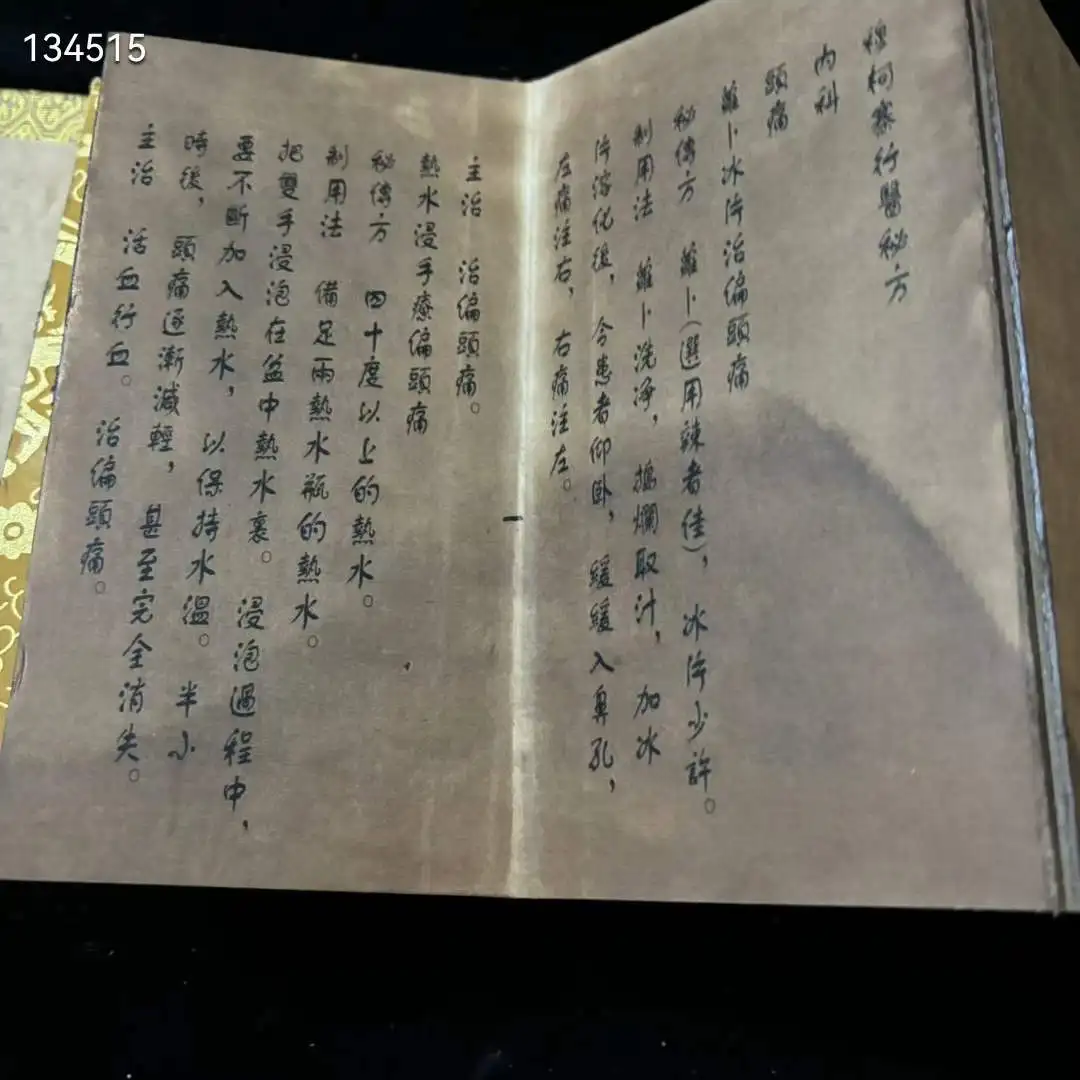 134515
穆柯寨行醫秘方
內科
頭痛
蘿卜冰片治偏頭痛
秘傳方 蘿卜(選用辣者佳)，冰片少許。
制用法 蘿卜洗淨，搗爛取汁，加冰
片溶化後，令患者仰卧，緩緩入鼻孔，
左痛注右，右痛注左。
一
主治 治偏頭痛。
熱水浸手療偏頭痛
秘傳方 四十度以上的熱水。
制用法 備足兩熱水瓶的熱水。
把雙手浸泡在盆中熱水裏。浸泡過程中，
要不斷加入熱水，以保持水溫。半小
時後，頭痛逐漸減輕，甚至完全消失。
主治 活血行血。治偏頭痛。